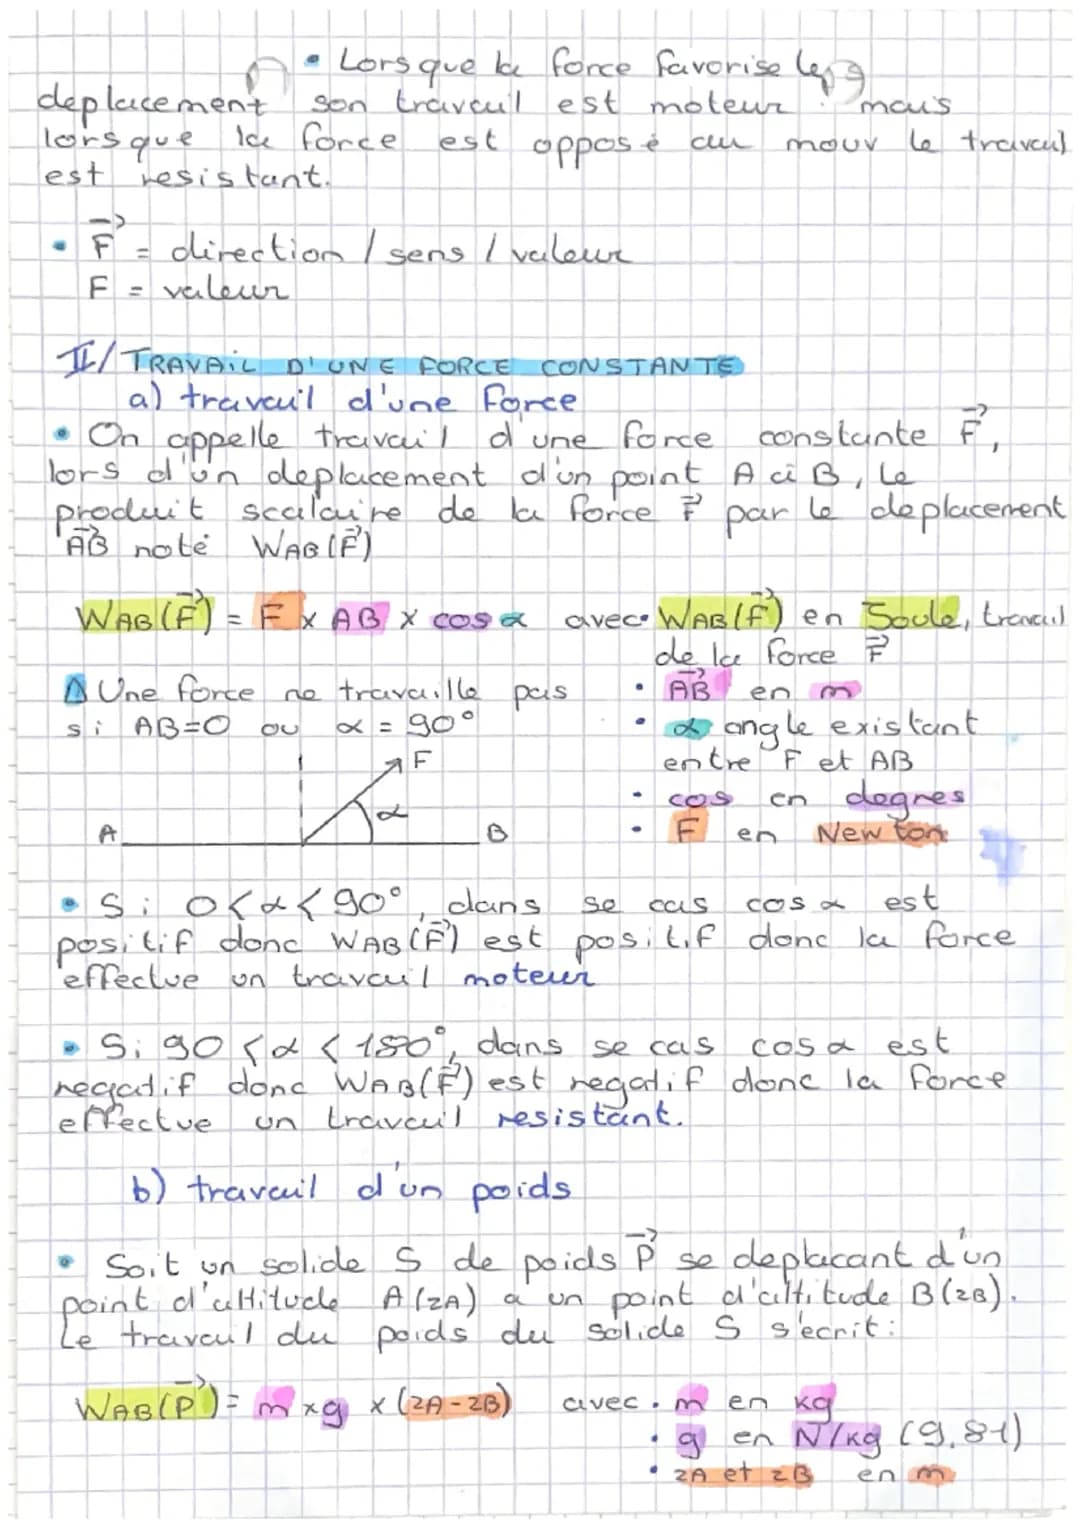 • Lorsque la force favorise le
deplacement son travail est moteur mais
lorsque la force est opposé au mouv le travail
est resistant.
• F⃗ = direction / sens / valeur
F = valeur
II/ TRAVAIL D'UNE FORCE CONSTANTE
a) travail d'une force
• On appelle travail d'une force constante F⃗,
lors d'un deplacement d'un point A à B, le
produit scalaire de la force F⃗ par le deplacement
AB⃗ noté WAB(F⃗)
WAB(F⃗) = F x AB x cos α avec • WAB(F⃗) en Joule, travail
de la force F⃗
⚠ Une force ne travaille pas • AB⃗ en m
si AB=0 ou α = 90° • α angle existant
entre F et AB
• cos en degres
• F en Newton
F
α
A B
• Si 0<α<90°, dans se cas cos α est
positif donc WAB(F⃗) est positif donc la force
effectue un travail moteur
• Si 90<α<180°, dans se cas cos α est
negatif donc WAB(F⃗) est negatif donc la force
effectue un travail resistant.
b) travail d'un poids
• Soit un solide S de poids P⃗ se deplacant d'un
point d'altitude A(zA) a un point d'altitude B(zB).
Le travail du poids du solide S s'ecrit:
WAB(P⃗) = m x g x (zA-zB) avec • m en kg
• g en N/kg (9.81)
• zA et zB en m